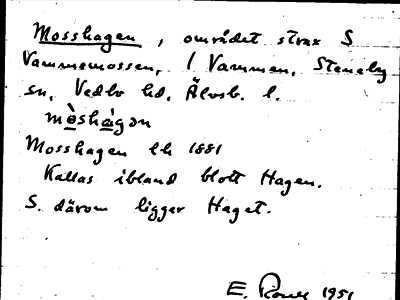 Mosshagen, området strax S
Vammemossen, / Vammen, Steneby
sn, Vedbo hd, Älvsb. l.
mòshàgən
Mosshagen lh 1881
Kallas ibland blott Hagen.
S. därom ligger Haget.
E. 1951